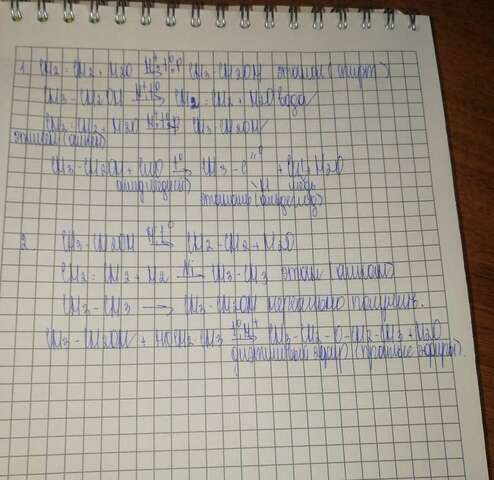 1. CH2=CH2+H2O H+,t°,p→ CH3-CH2OH этанол (спирт)
CH3-CH2OH H+,t°→ CH2=CH2+H2O вода
CH2=CH2+H2O H+,t°,p→ CH3-CH2OH
этилен (алкен)
CH3-CH2OH+CuO t°→ CH3-C=O H +Cu+H2O
медь
этаналь (альдегид)
2. CH3-CH2OH H+,t°→ CH2=CH2+H2O
CH2=CH2+H2 Ni→ CH3-CH3 этан (алкан)
CH3-CH3 → CH3-CH2OH
CH3-CH2OH + HOCH2-CH3 t°,H+→ CH3-CH2-O-CH2-CH3+H2O
диэтиловый эфир (простые эфиры).